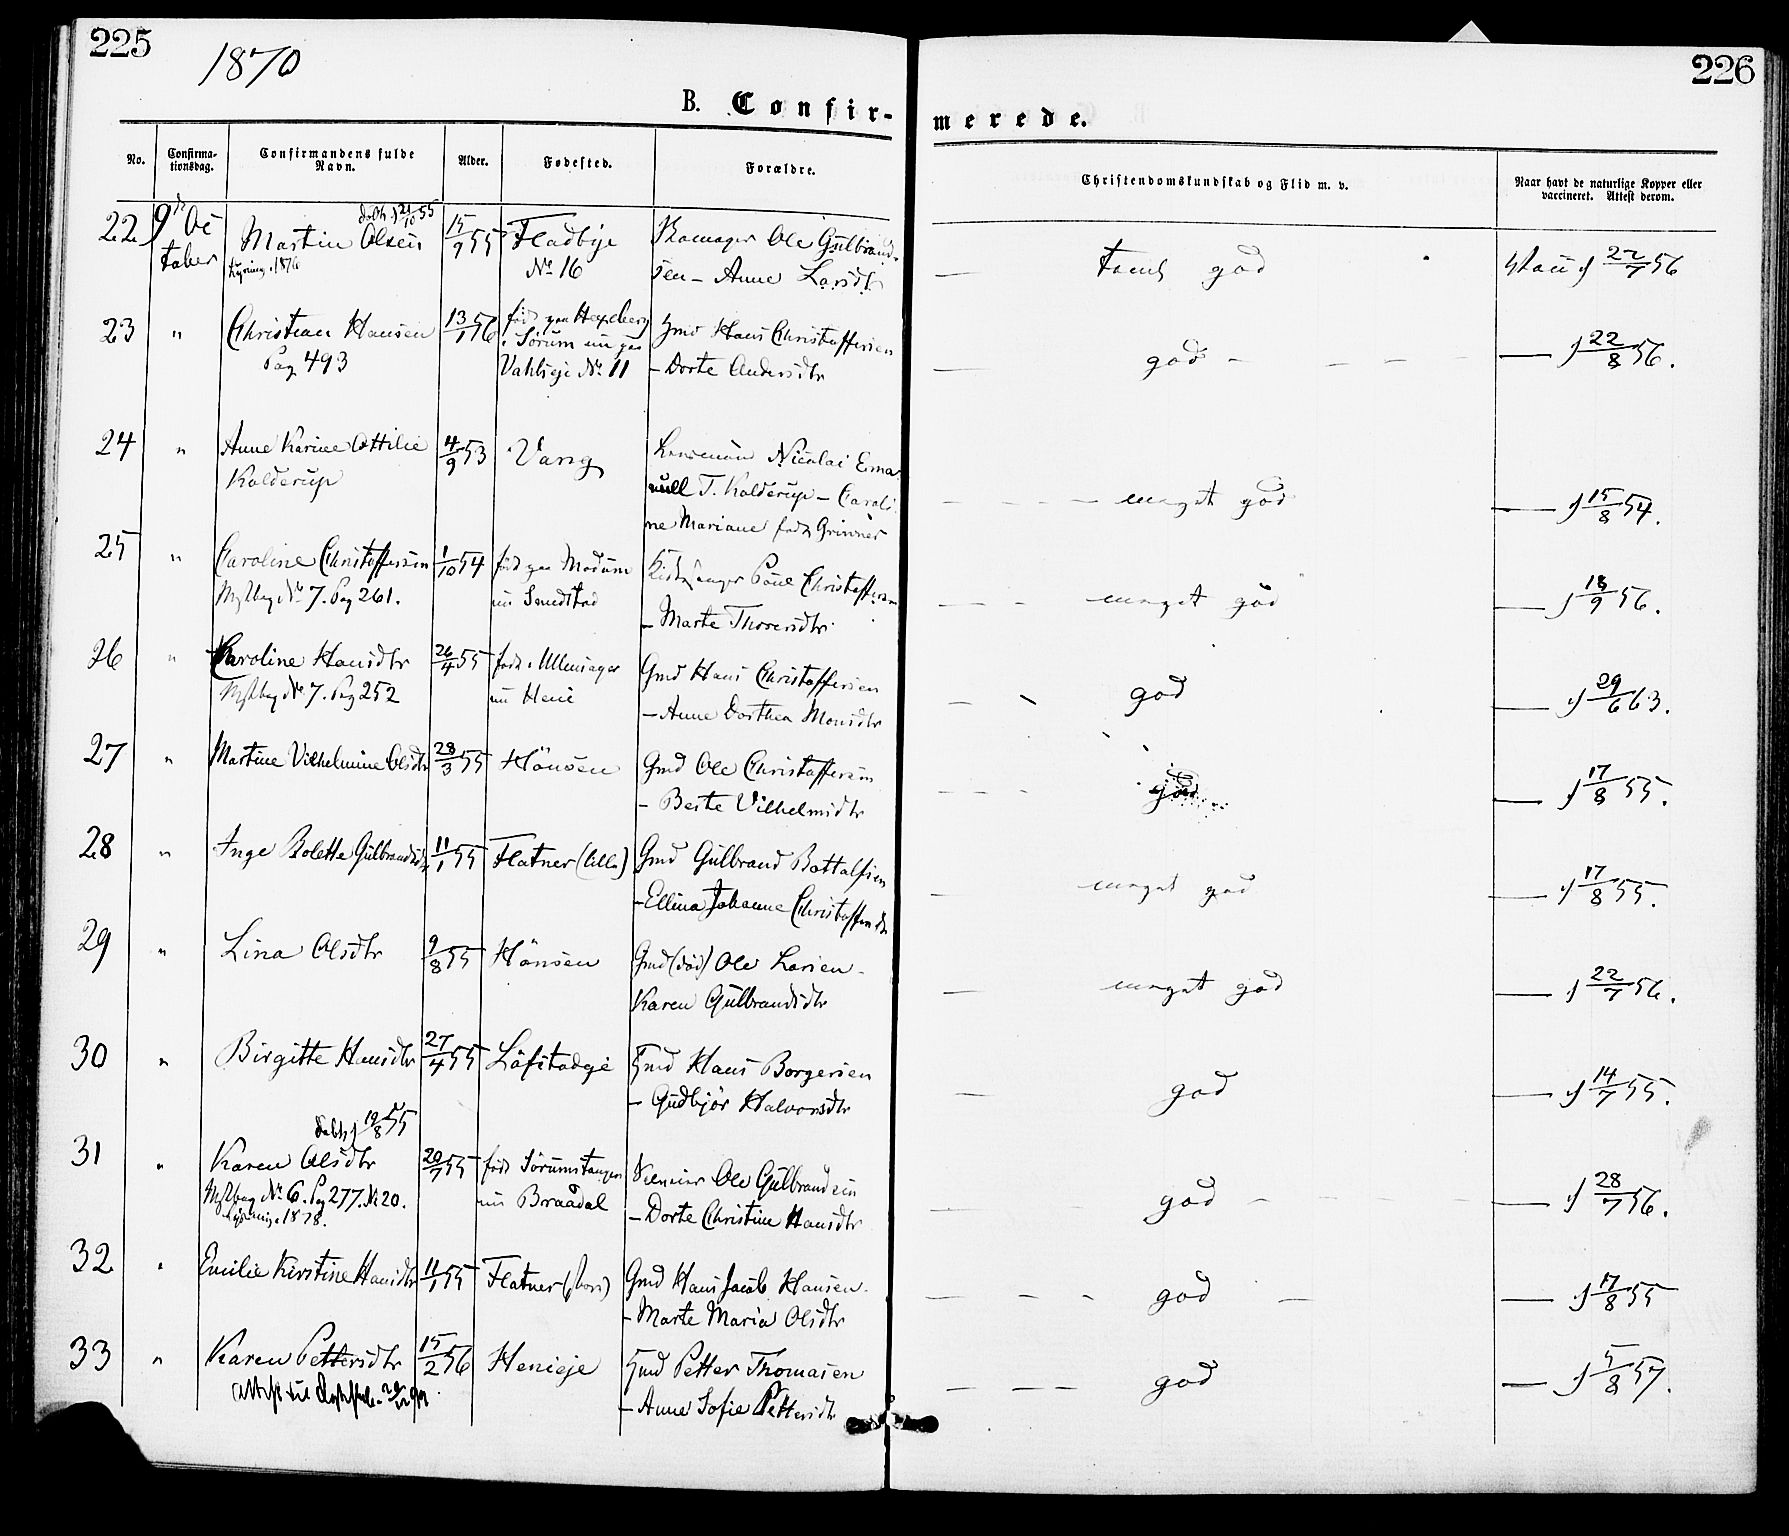 225
1870
B. Confir-
No. Confirma-tionsdag. Confirmandens fulde Navn. Alder. Fødested. Forældre.
22 9de Oc tober døbt 21/10 55 Martin Olsen 15/9 55 Fladbye No 16 Skomager Ole Gulbrand-
sen - Anne Larsdtr
23 " Christian Hansen 13/1 56 Gmd Hans Christoffersen
Pag 493 Sørum nu paa Vahleje No 11 - Dorte Andersdtr
24 " Anne Karine Ottilie 4/9 53 Vang Nicolai Ema
Kolderup nuell T. Kolderup - Caroli
ne Mariane født
25 " Caroline Christoffersen 1/10 54 født paa Modum Christoffersen
No 7. Pag 261. nu - Marte Thoresdtr
26 " Caroline Hansdtr 26/4 55 født i Ullensager Gmd Hans Christoffersen
No 7. Pag 252 nu - Anne Dorthea Monsdtr
27 " Martine Vilhelmine Olsdtr 28/3 55 Hønsen Gmd Ole Christoffersen
- Berte Vilhelmsdtr
28 " Inge Bolette Gulbrandsdtr 11/1 55 Flatner (lille) Gmd Gulbrand Bottolfsen
- Ellina Johanne Christoffersdtr
29 " Lina Olsdtr 9/8 55 Hønsen Gmd (død) Ole Larsen -
Karen Gulbrandsdtr
30 " Birgitte Hansdtr 27/4 55 Gmd Hans Borgersen
- Gudbjør Halvorsdtr
31 " døbt 19/8 55
Karen Olsdtr 20/7 55 født Ole Gulbrandsen
No 6. Pag 277. No 20. nu Braadal - Dorte Christine Hansdtr
1878.
32 " Emilie Kirstine Hansdtr 11/1 55 Flatner (store) Gmd Hans Jacob Hansen -
- Marte Maria Olsdtr
33 " Karen Pettersdtr 15/2 56 Henieje Gmd Petter Thomasen
- Anne Sofie Pettersdtr
226
merede.
Christendomskundskab og Flid m. v. Naar havt de naturlige Kopper eller
vaccineret. Attest derom.
— god 22/7 56
— god - — 22/8 56.
— meget god — 15/8 54.
— meget god — 18/9 56.
— god — 29/6 63.
— god — 17/8 55.
— meget god — 17/8 55.
— meget god — 22/7 56.
— god — 14/7 55.
— god - — 28/7 56.
— god — — 17/8 55
— god — 5/8 57.